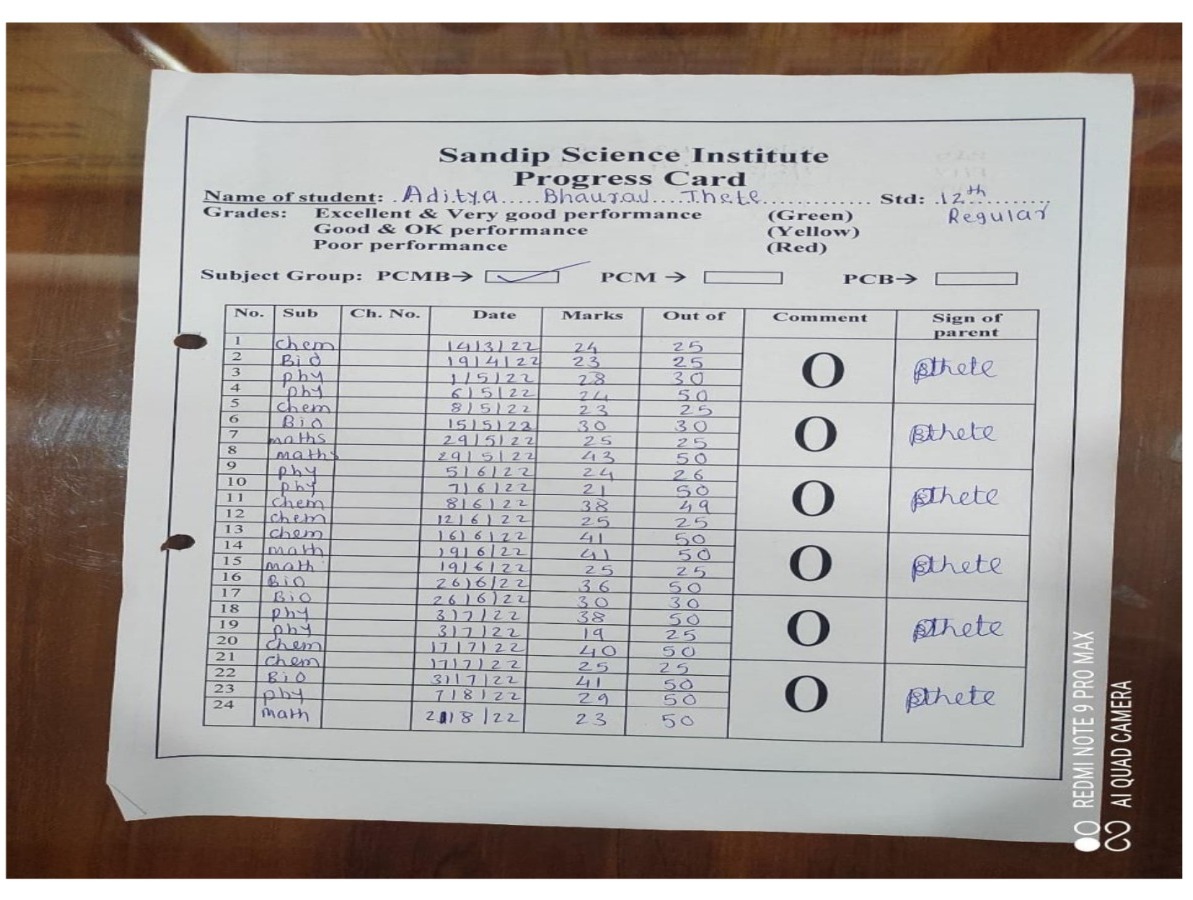 Sandip Science Institute
Progress Card
Name of student: Aditya Bhaurao Thete Std: 12th
Grades: Excellent & Very good performance (Green) Regular
Good & OK performance (Yellow)
Poor performance (Red)
Subject Group: PCMB→ ✓ PCM → PCB→
No. Sub Ch. No. Date Marks Out of Comment Sign of parent
1 chem 14/3/22 24 25 O pthete
2 Bio 19/4/22 23 25
3 phy 1/5/22 28 30
4 phy 6/5/22 24 50
5 chem 8/5/22 23 25 O pthete
6 Bio 15/5/22 30 30
7 maths 29/5/22 25 25
8 maths 29/5/22 43 50
9 phy 5/6/22 24 26 O pthete
10 phy 7/6/22 21 50
11 chem 8/6/22 38 49
12 chem 12/6/22 25 25
13 chem 16/6/22 41 50 O pthete
14 math 19/6/22 41 50
15 math 19/6/22 25 25
16 Bio 26/6/22 36 50
17 Bio 26/6/22 30 30 O pthete
18 phy 3/7/22 38 50
19 phy 3/7/22 19 25
20 chem 17/7/22 40 50
21 chem 17/7/22 25 25 O pthete
22 Bio 31/7/22 41 50
23 phy 7/8/22 29 50
24 math 21/8/22 23 50
REDMI NOTE 9 PRO MAX
AI QUAD CAMERA